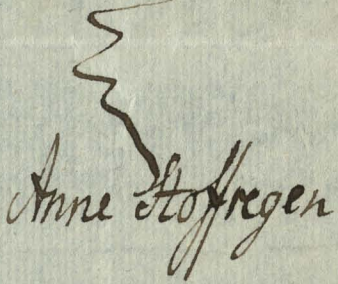 Anne Stoffregen